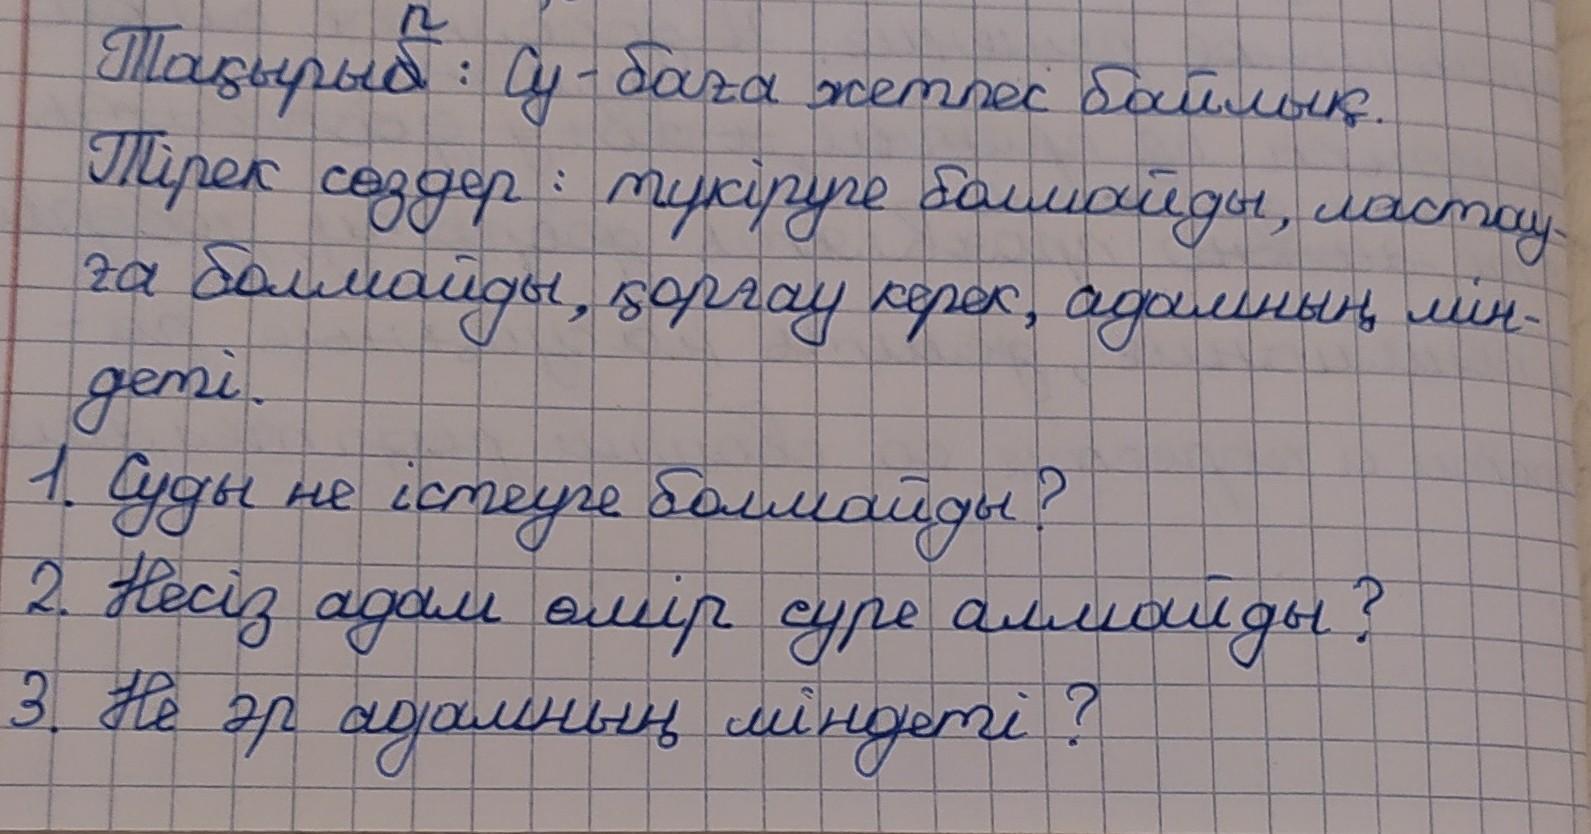 Тақырып : Су - баға жетпес байлық.
Тірек сөздер : түкіруге болмайды, ластау-
ға болмайды, қорғау керек, адамның мін-
деті.
1. Суды не істеуге болмайды?
2. Несіз адам өмір сүре алмайды?
3. Не әр адамның міндеті?